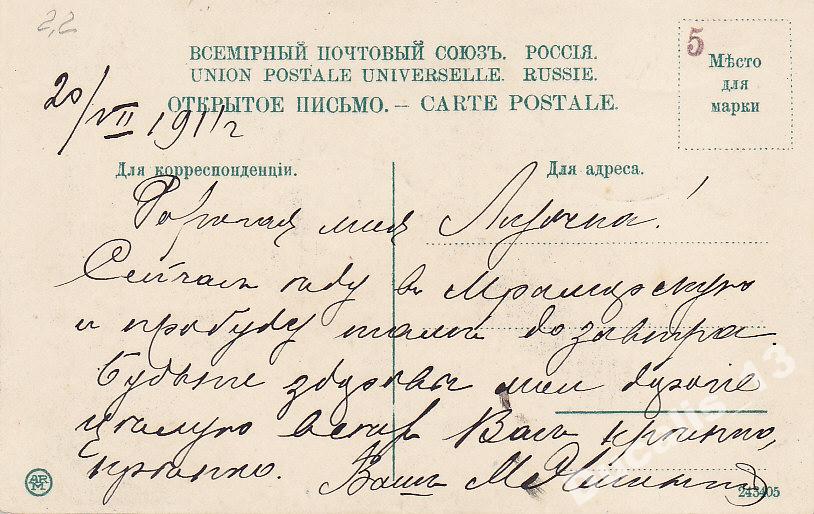 2,2
5
ВСЕМІРНЫЙ ПОЧТОВЫЙ СОЮЗЪ. РОССІЯ.
UNION POSTALE UNIVERSELLE. RUSSIE.
ОТКРЫТОЕ ПИСЬМО. – CARTE POSTALE.
Мѣсто
для
марки
20/VII 1911 г
Для корреспонденціи.
Для адреса.
Дорогая моя Лидочка!
Сейчасъ ѣду въ Мраморскую
и пробуду тамъ до завтра.
Будьте здоровы мои
цѣлую Васъ крѣпко,
крѣпко. Вашъ М.
ARM
243405